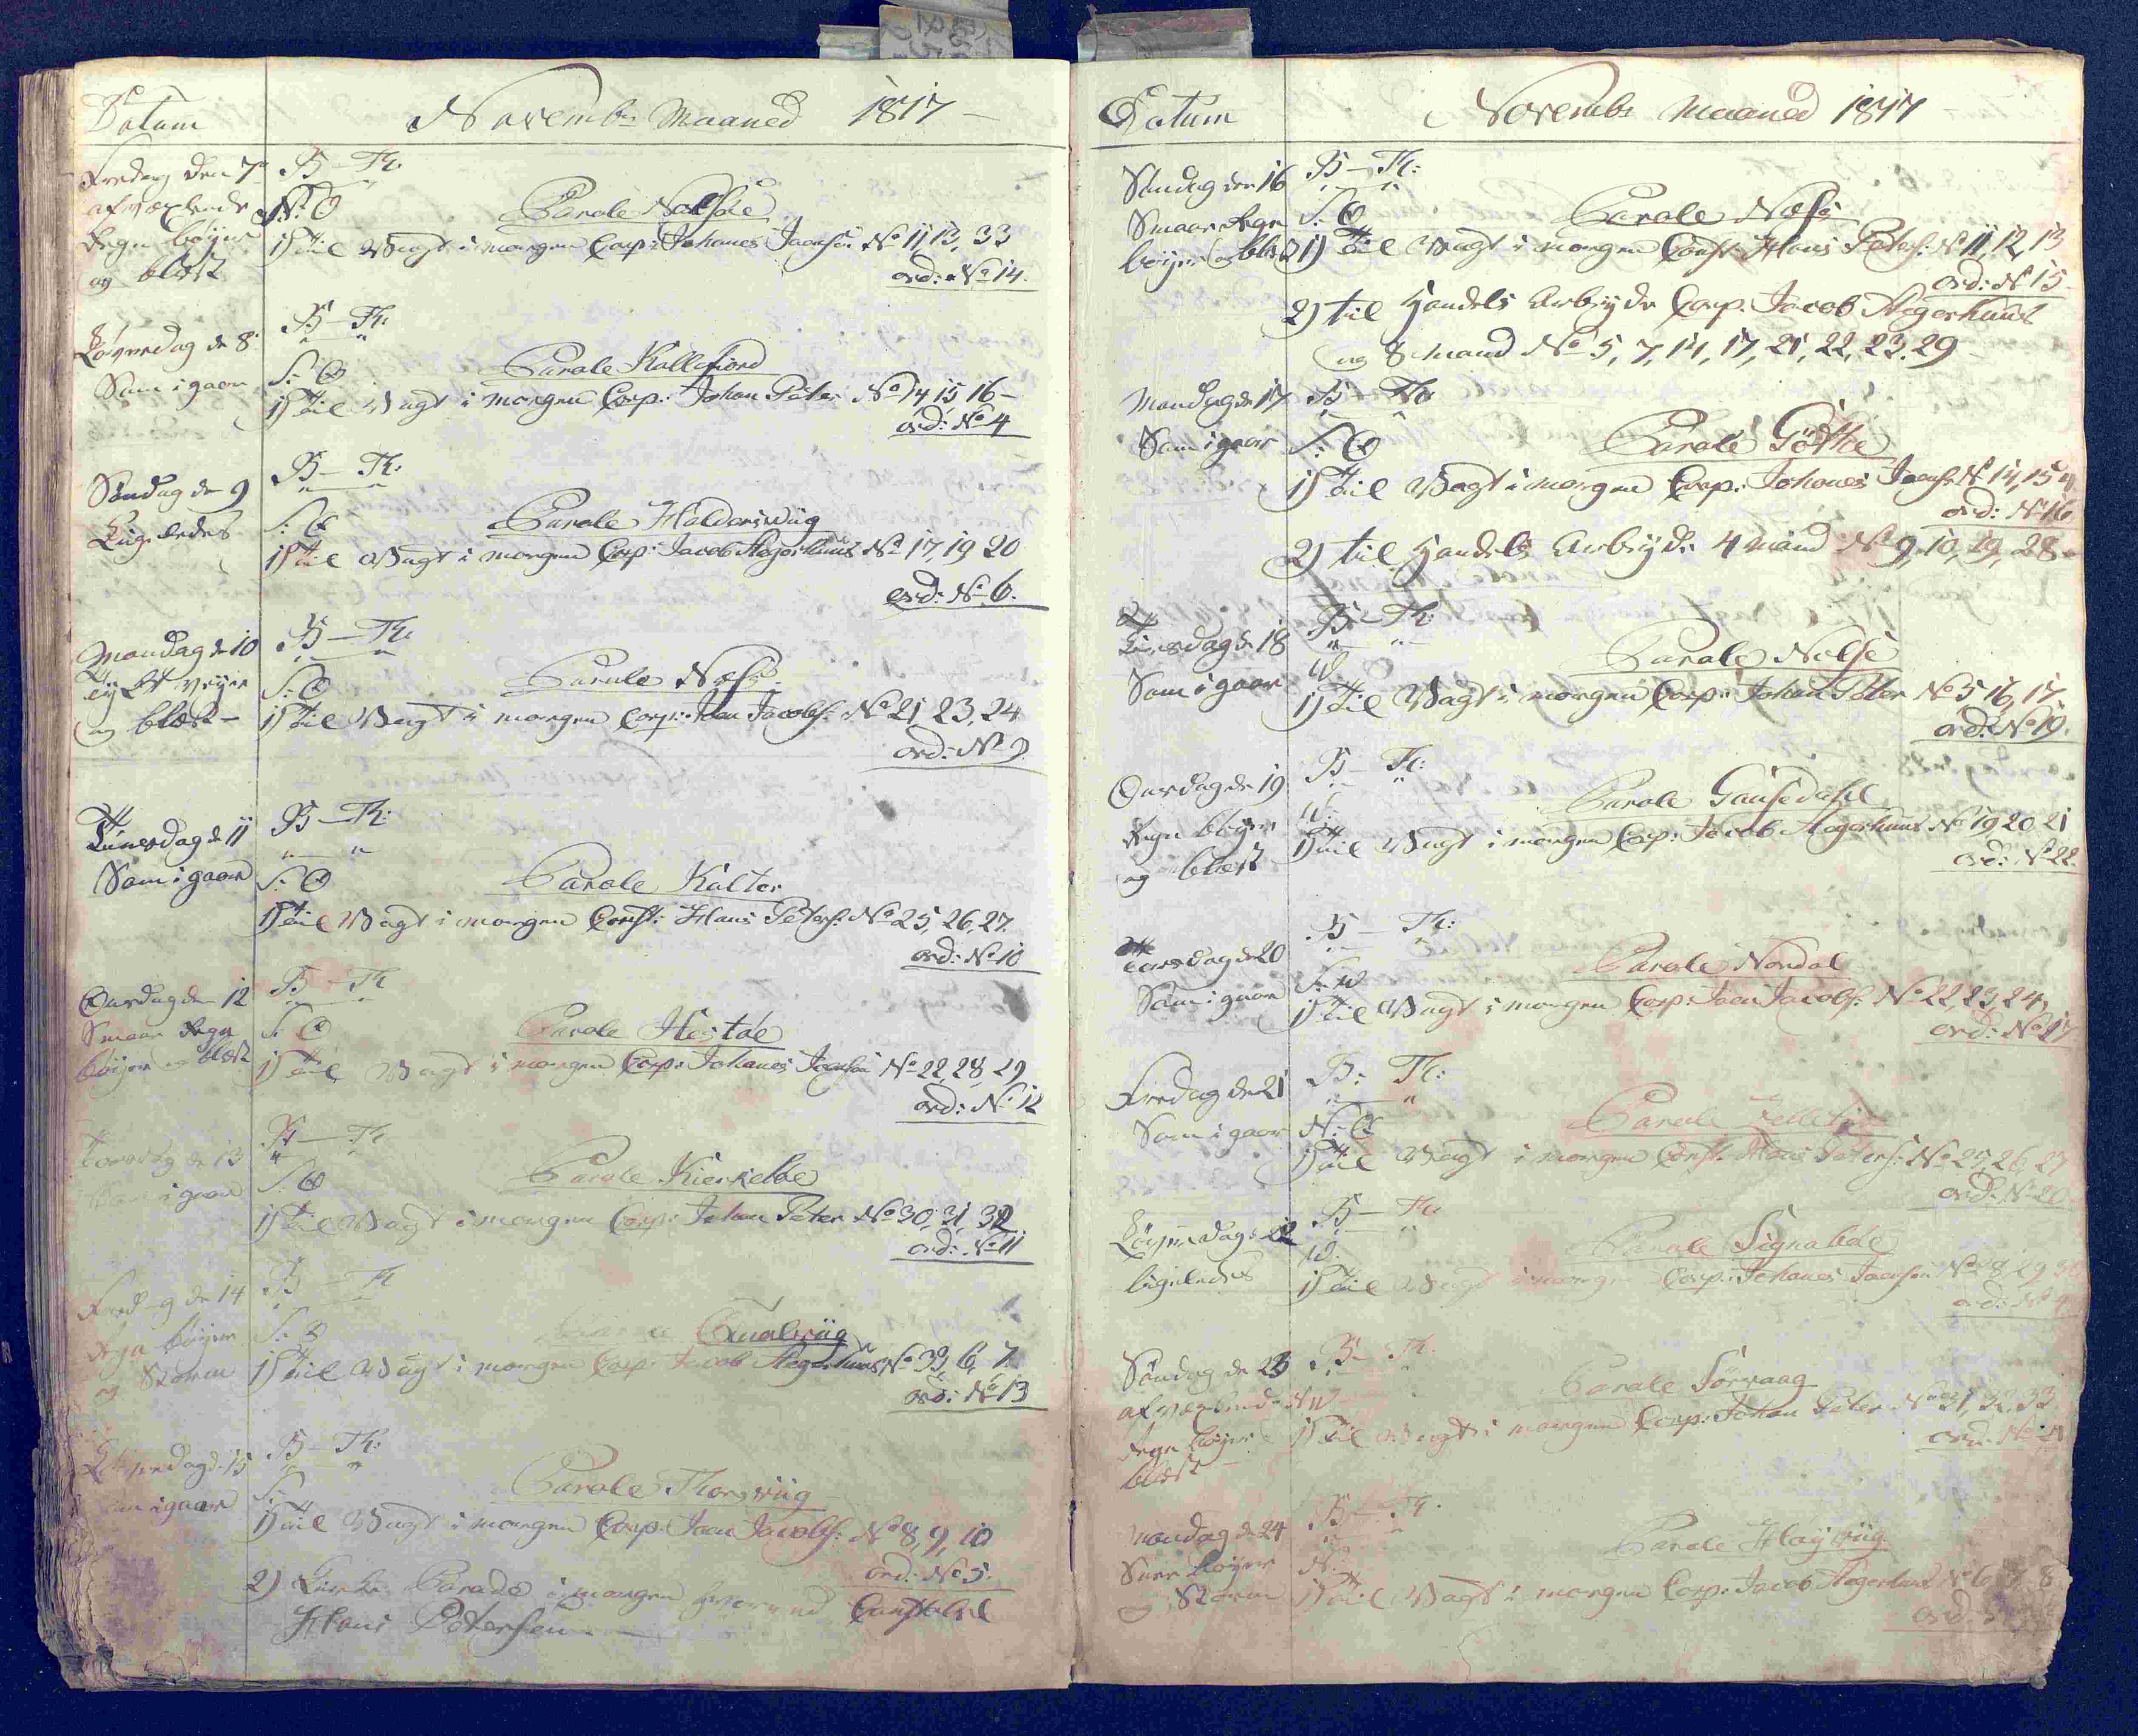 Datum
Novembr Maaned 1817
Fredag den 7de
B - Th:
afvexlende
N: O
Parole Nolsöe
Regn böyer
1) til Vagt i morgen Corp: Johanes Joensen No 11, 13, 33
og blæst
ord: No 14.
Löverdag de 8
B - Th:
Som i gaar
S: O
Parole Kallefiord
1) til Vagt i morgen Corp: Johan Peter No 14 15 16 -
ord: No 4
Söndag de 9
B - Th:
Ligeledes
S: O
Parole Haldersviig
1) til Vagt i morgen Corp: Jacob Hegerhuus No 17, 19 20
ord: No 6.
Mandag de 10
B - Th:
S: O
Parole Næss
og blæst -
1) til Vagt i morgen Corp: Joen Jacobs: No 21, 23, 24
ord: No 9
Tiirsdag de 11
B - Th:
Som i gaar
S: O
Parole Kolter
1) til Vagt i morgen Const: Hans Peters: No 25, 26, 27.
ord: No 10
Onsdag den 12
B - Th
Smaae Regn
S: O
Parole Hestöe
böyer og blæst
1) til Vagt i morgen Corp: Johanes Joensen No 22, 28, 29
ord: No 12
Torsdag de 13
B - Th
Som i gaar
S: O
Parole Kierkebøe
1) til Vagt i morgen Corp: Johan Peter No 30, 31, 32
ord: No 11
Fredag de 14
B - Th
Regn böyer
S: O
Parole Qualviig
og Storm
1) til Vagt i morgen Corp: Jacob Hegerhuus No 33, 6, 7.
ord: No 13
Löverdag d. 15
B - Th:
Som i gaar
S:
Parole Thorsviig
1) til Vagt i morgen Corp: Joen Jacobs: No 8, 9, 10
ord: No 5.
2) Kirke Parade i morgen Constabel
Hans Petersen
Datum
Novembr Maaned 1817
Söndag den 16
B - Th:
Smaae Regn
S: O
Parole Næss
böyer og blæst
1) til Vagt i morgen Const: Hans Peters: No 11, 12, 13
ord: No 15
2) til Handels Arbeyde Corp: Jacob Hegerhuus
og 8 Mand No 5, 7, 14, 17, 21, 22, 23, 29
Mandag de 17
B - Th:
Som i gaar
S: O
Parole Göthe
1) til Vagt i morgen Corp: Johanes Joens: No 14, 15
ord: No 16
2) til Handels Arbeyde 4 Mand No 9, 10, 19, 28
Tiirsdag de 18
B - Th:
Som i gaar
W
Parole Nolse
1) til Vagt i morgen Corp: Johan Peter No 5 16, 17
ord: No 19.
Onsdag de 19
B - Th:
Regn böyer
W:
Parole Gausedahl
og blæst
1) til Vagt i morgen Corp: Jacob Hegerhuus No 19 20 21
ord: No 22
Torsdag de 20
B - Th:
Som i gaar
S: W
Parole Nordal
1) til Vagt i morgen Corp: Joen Jacobs: No 22, 23, 24,
ord: No 17
Fredag de 21
B: Th:
Som i gaar
N: O
Parole
1) til Vagt i morgen Const: Hans Peters: No 26, 27
ord: No 20
Löverdag de 22
B - Th:
ligeledes
W:
Parole Signabøe
1) til Vagt i morgen Corp: Johanes Joensen No 28, 29
ord: No
Söndag de 23
B - Th.
afvexlende
Parole Sörvaag
Regn böyer
1) til Vagt i morgen Corp: Johan Peter No 31, 32, 33
ord: No
blæst
Mandag de 24
B - Th.
Snee böyer
N:
Parole Høyviig
og Storm
1) til Vagt i morgen Corp: Jacob Hegerhuus No 6, 7, 8
ord: